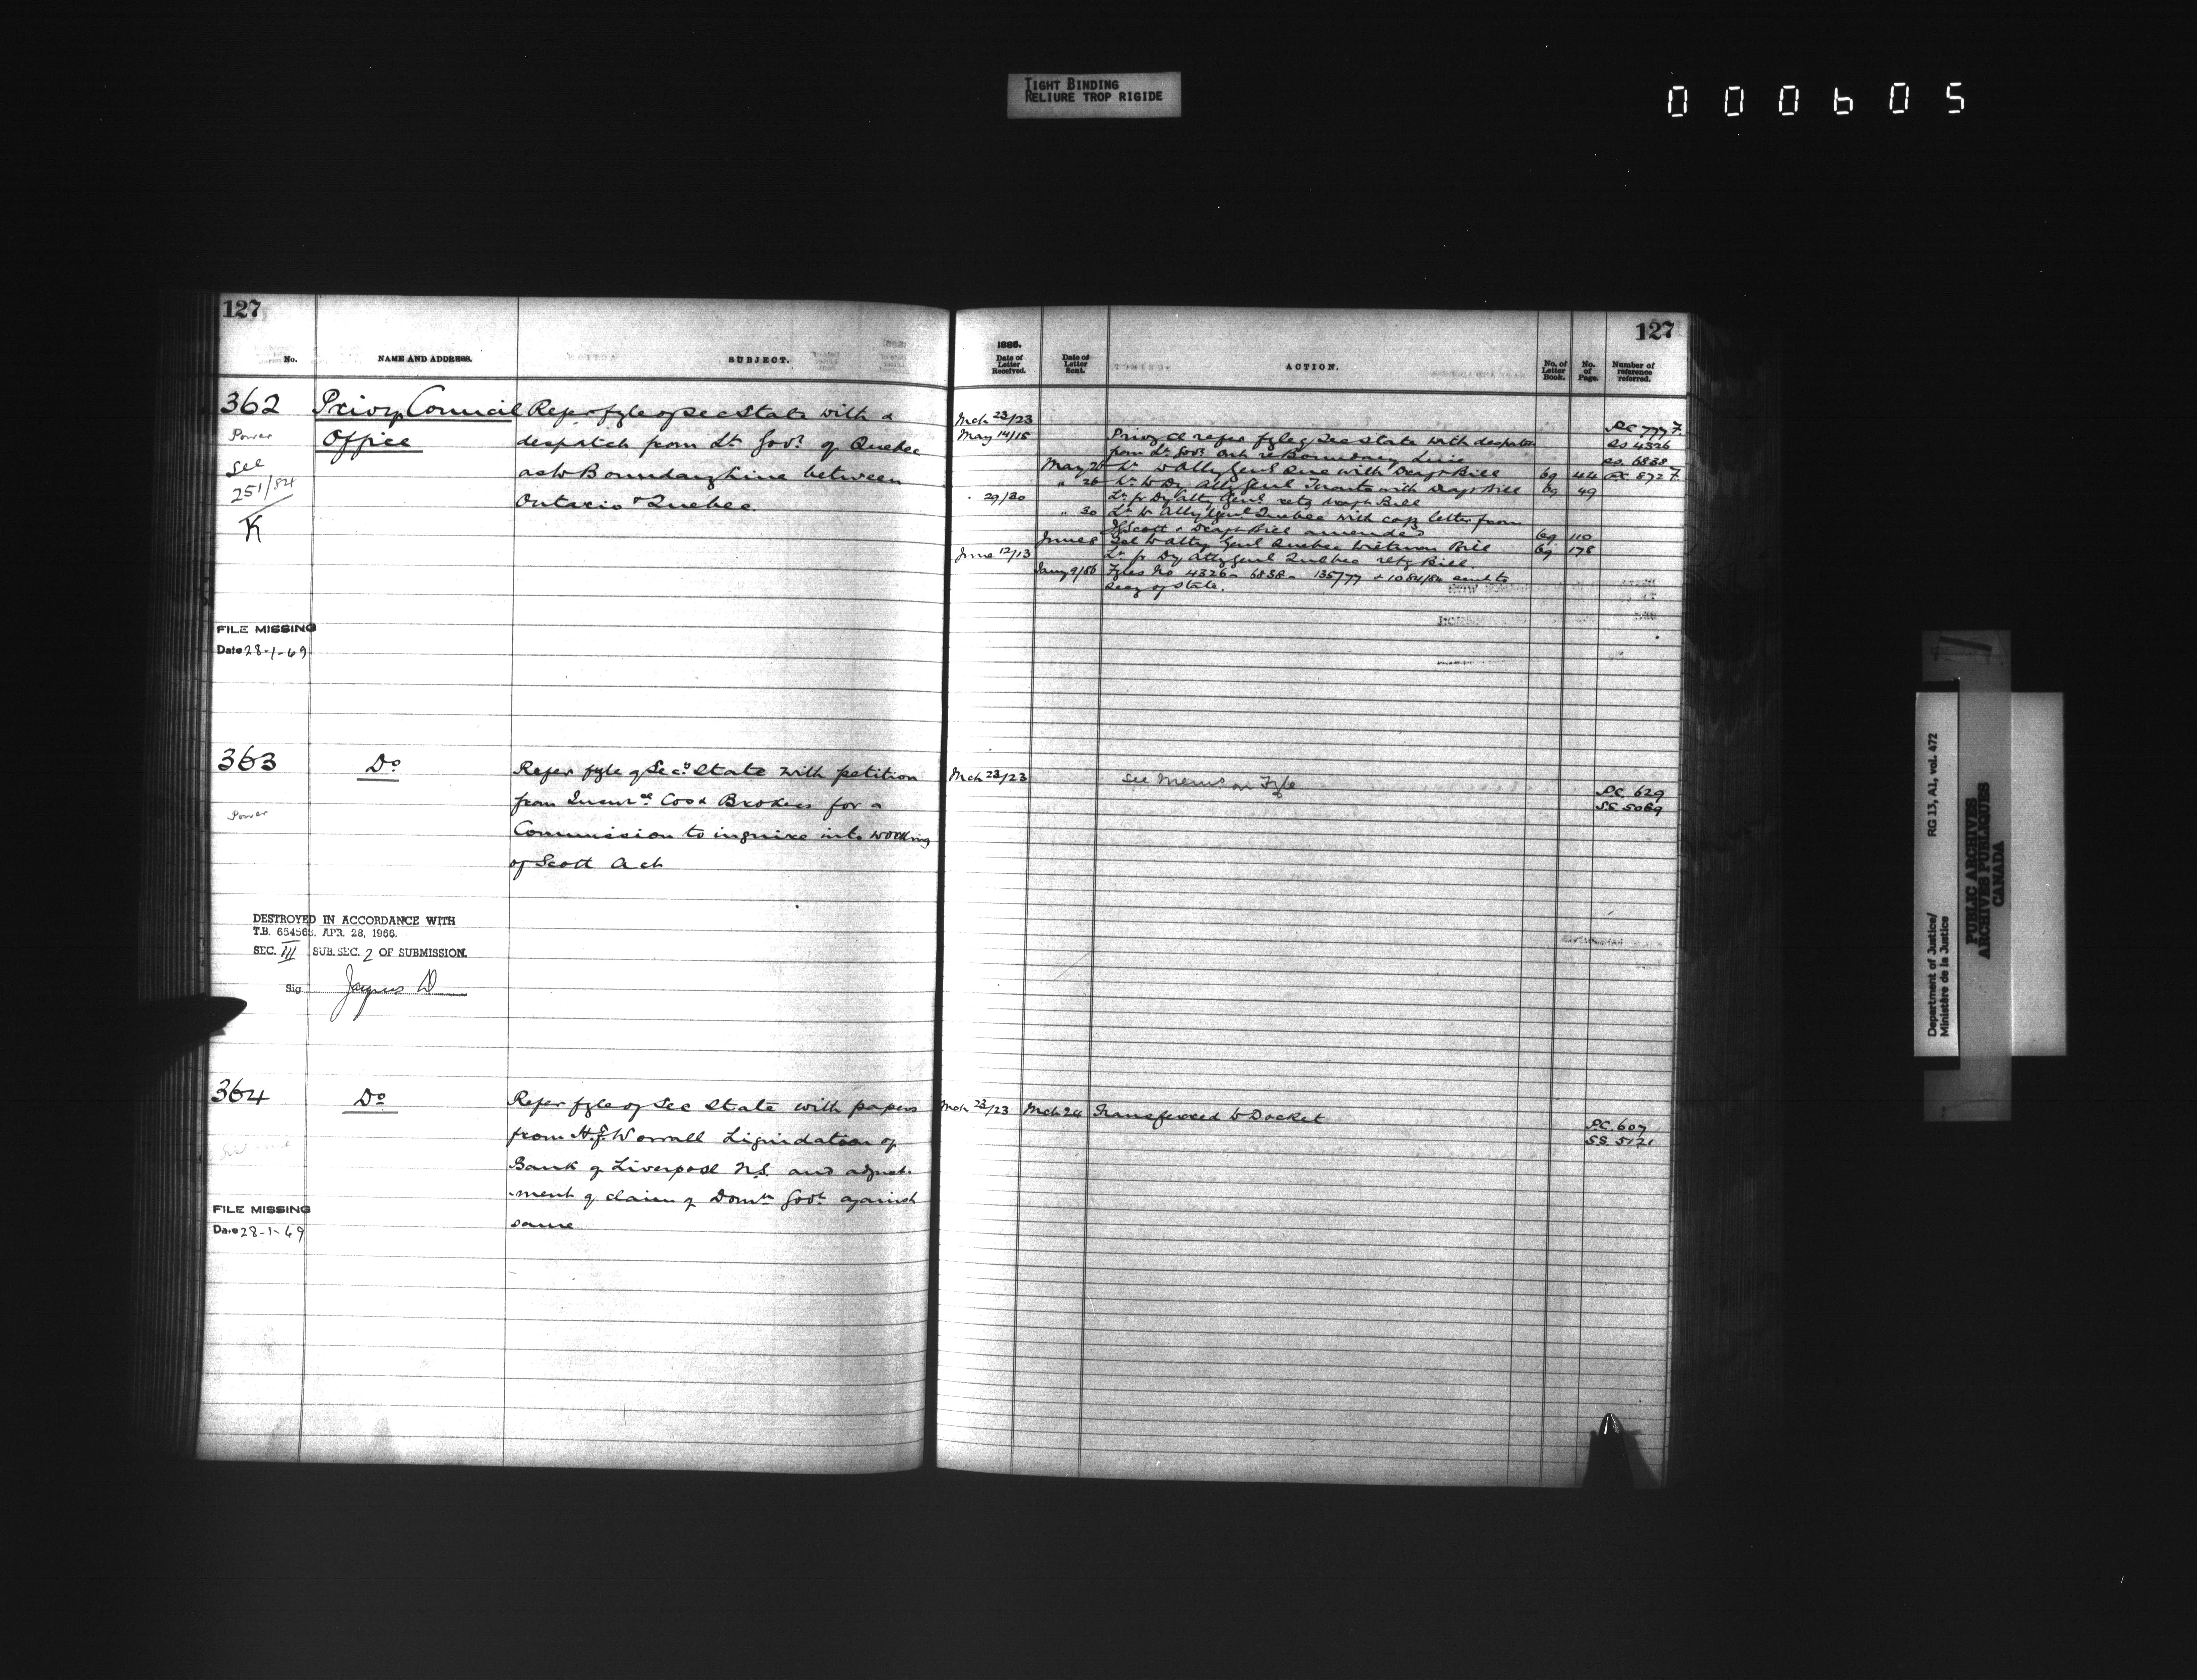 TIGHT BINDING
RELIURE TROP RIGIDE
000605
127
No. NAME AND ADDRESS. SUBJECT.
362 Privy Council Refer fyle of Sec State with a
Power Office despatch from Lt Govr of Quebec
See as to Boundary Line between
251/84 Ontario & Quebec.
K
FILE MISSING
Date 28-1-69
363 Do Refer fyle of Secy State with petition
from Insurce Cos & Brokers for a
Power
Commission to inquire into working
of Scott Act
DESTROYED IN ACCORDANCE WITH
T.B. 654563, APR. 28, 1966.
SEC. III SUB. SEC. 2 OF SUBMISSION.
Sig. Jacques D
364 Do Refer fyle of Sec State with papers
from Worrall Liquidation of
Bank of Liverpool N.S. and adjust-
-ment of claim of Domn Govt against
same
FILE MISSING
Date 28-1-69
127
1885.
Date of Letter Received. Date of Letter Sent. ACTION. No. of Letter Book. No. of Page. Number of reference referred.
Mch 23/23 P.C. 777 F.
May 14/15 Privy Cl refer fyle of Sec State with despatch SS 4326
from Lt Govr Ont re Boundary Line SS. 6838
May 26 Lr to Atty Genl Que with Draft Bill 69 44 872 F
" 26 Lr to Dy Atty Genl Toronto with Draft Bill 69 49
" 29/30 Lr fr Dy Atty Genl retg Draft Bill
" 30 Lr to Atty Genl Quebec with copy letter from
Scott & Draft Bill amended 69 110
June 8 Tel to Atty Genl Quebec to return Bill 69 178
June 12/13 Lr fr Dy Atty Genl Quebec retg Bill
Jany 9/86 Fyles No 4326 - 6838 - 135/77 & 1084/84 sent to
Secy of State.
Mch 23/23 See Memo on Fyle
P.C. 629
S.S. 5069
Mch 23/23 Mch 24 Transferred to Docket
P.C. 607
S.S. 5121
Department of Justice/ RG 13, A1, vol. 472
Ministère de la Justice
PUBLIC ARCHIVES
ARCHIVES PUBLIQUES
CANADA